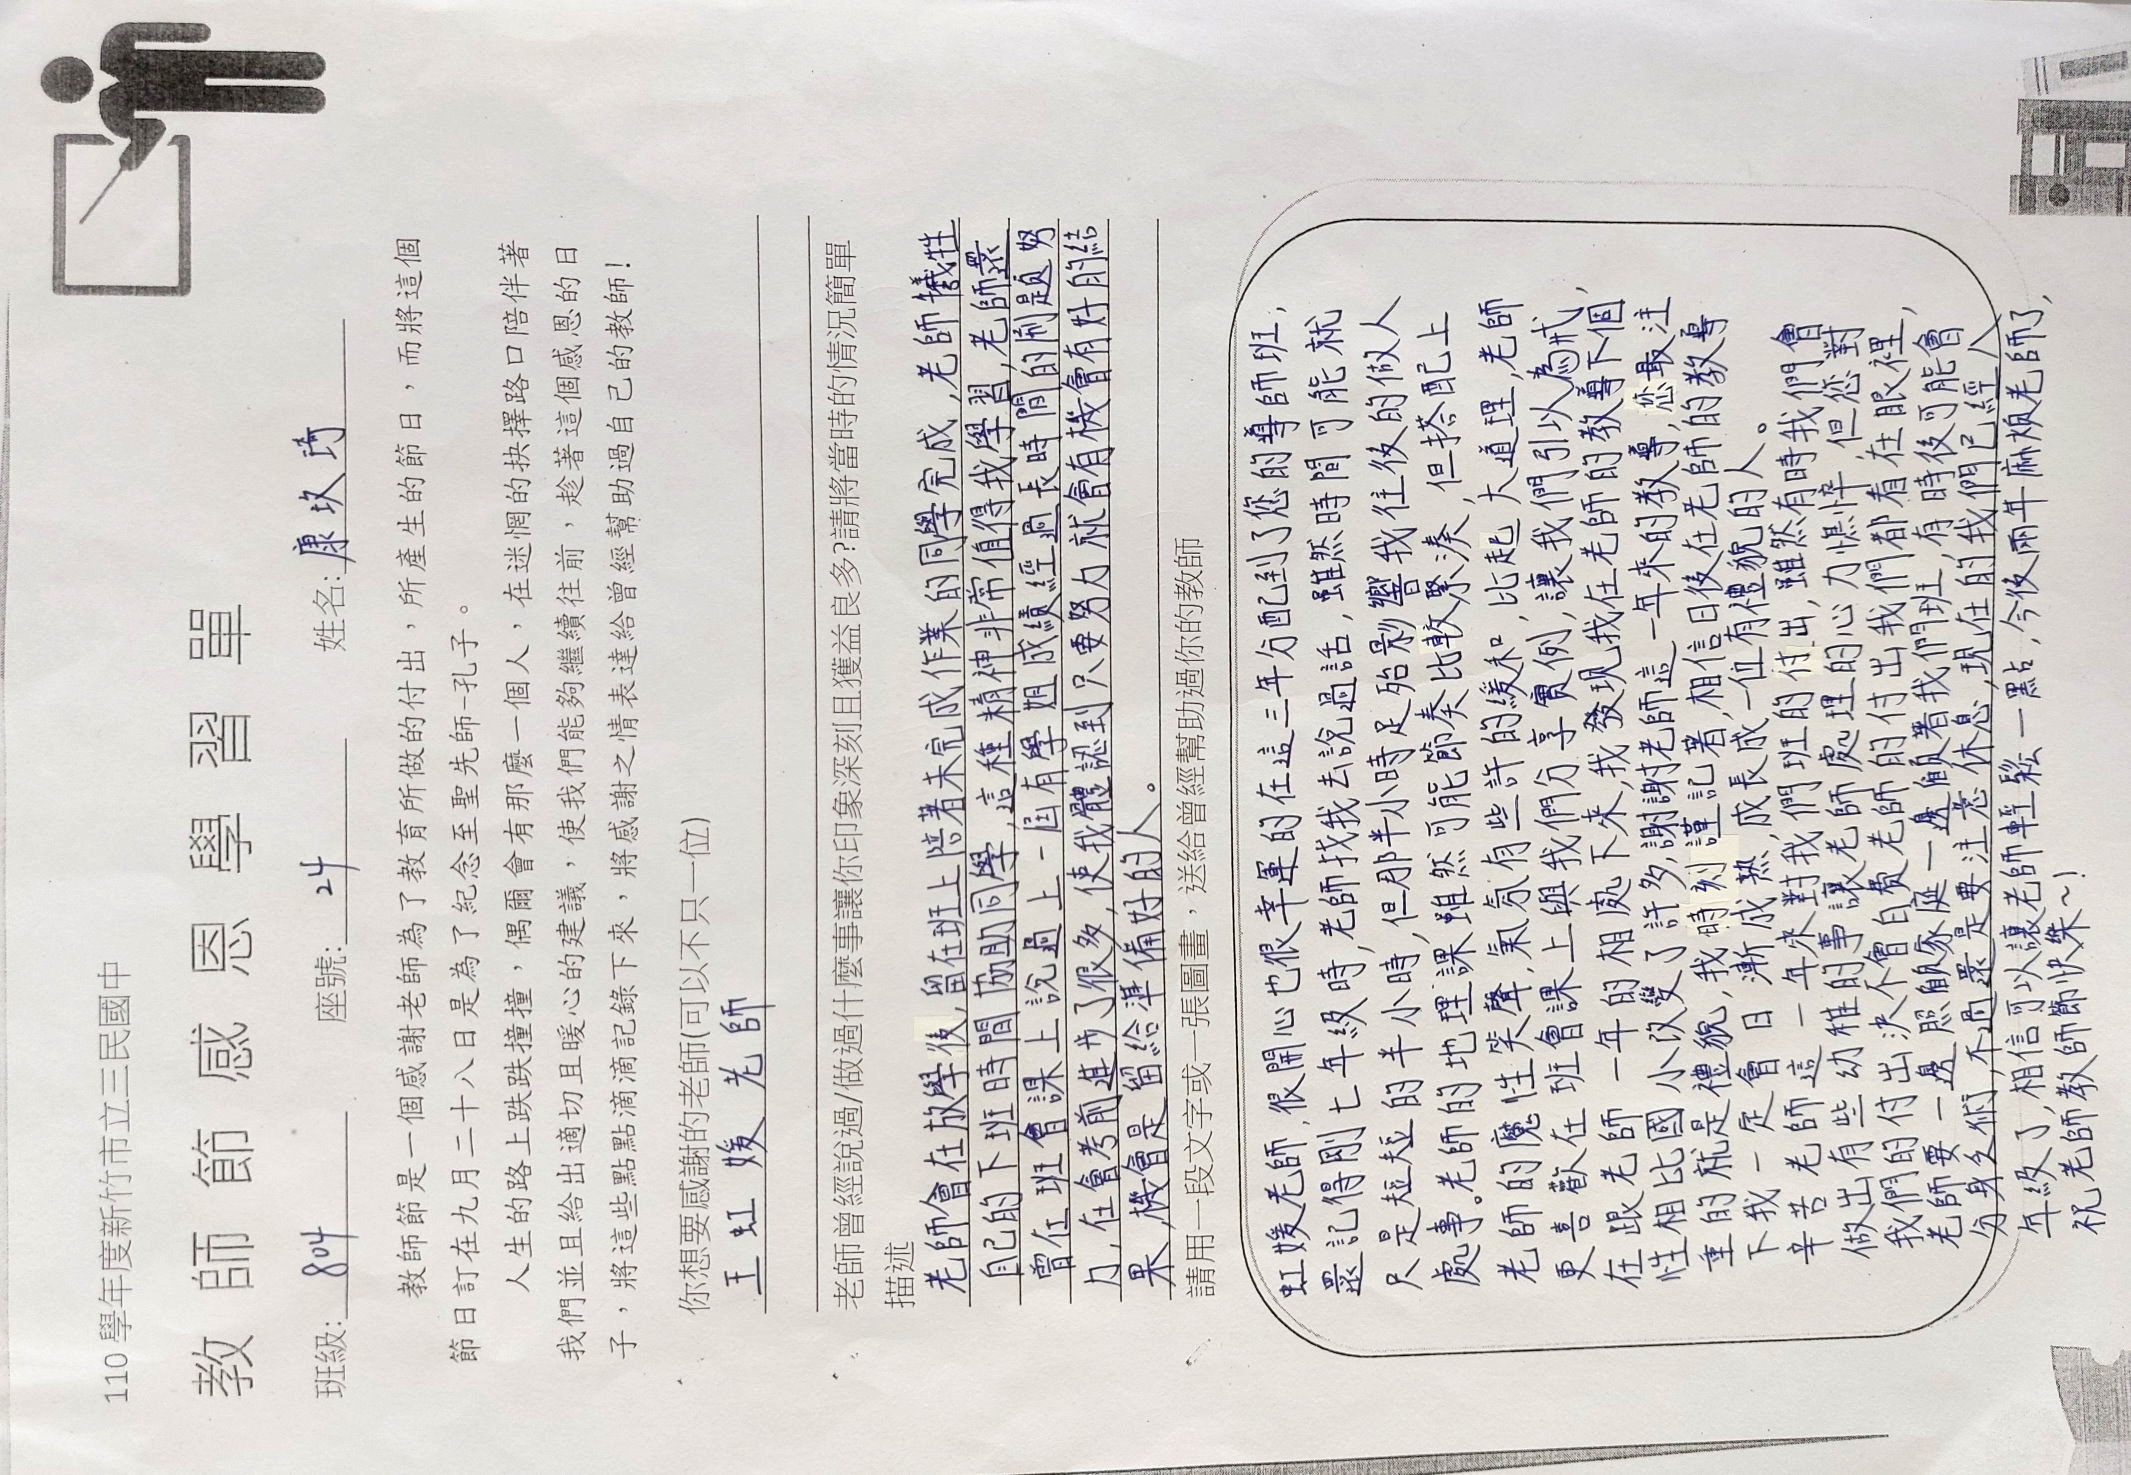 110 學年度新竹市立三民國中
教師節感恩學習單
班級: 804 座號: 24 姓名: 康玖琦
教師節是一個感謝老師為了教育所做的付出，所產生的節日，而將這個
節日訂在九月二十八日是為了紀念至聖先師-孔子。
人生的路上跌跌撞撞，偶爾會有那麼一個人，在迷惘的抉擇路口陪伴著
我們並且給出適切且暖心的建議，使我們能夠繼續往前，趁著這個感恩的日
子，將這些點點滴滴記錄下來，將感謝之情表達給曾經幫助過自己的教師!
你想要感謝的老師(可以不只一位)
王虹媛老師
老師曾經說過/做過什麼事讓你印象深刻且獲益良多?請將當時的情況簡單
描述
老師會在放學後,留在班上陪著未完成作業的同學完成,老師犧牲
自己的下班時間協助同學,這種精神非常值得我學習,老師還
曾在班會課上說過上一屆有學姐成績經過長時間的刷題努
力,在會考前進步了很多,使我體認到只要努力就會有機會有好的結
果,機會是留給準備好的人。
請用一段文字或一張圖畫，送給曾經幫助過你的教師
虹媛老師,很開心也很幸運的在這三年分配到了您的導師班,
還記得剛七年級時,老師找我去說過話,雖然時間可能就
只是短短的半小時,但那半小時足殆影響我往後的做人
處事。老師的地理課雖然可能節奏比較緊湊,但搭配上
老師的魔性笑聲,氣氛有些許的緩和,比起大道理,老師
更喜歡在班會課上與我們分享實例,讓我們引以為戒,
在跟老師一年的相處下來,我發現我在老師的教導下個
性相比國小改變了許多,謝謝老師這一年來的教導,您最注
重的就是禮貌,我時刻謹記著,相信日後在老師的教導
下我一定會日漸成熟,成長成一位有禮貌的人。
辛苦老師這一年來對我們班的付出,雖然有時我們會
做出有些幼稚的事讓老師處理的心力憔悴,但您對
我們的付出決不會白費老師的付出我們都看在眼裡,
老師要一邊照顧家庭一邊顧著我們班,有時後可能會
分身乏術,不過還是要注意休息,現在的我們已經八
年級了,相信可以讓老師輕鬆一點,今後兩年麻煩老師了,
祝老師教師節快樂~!